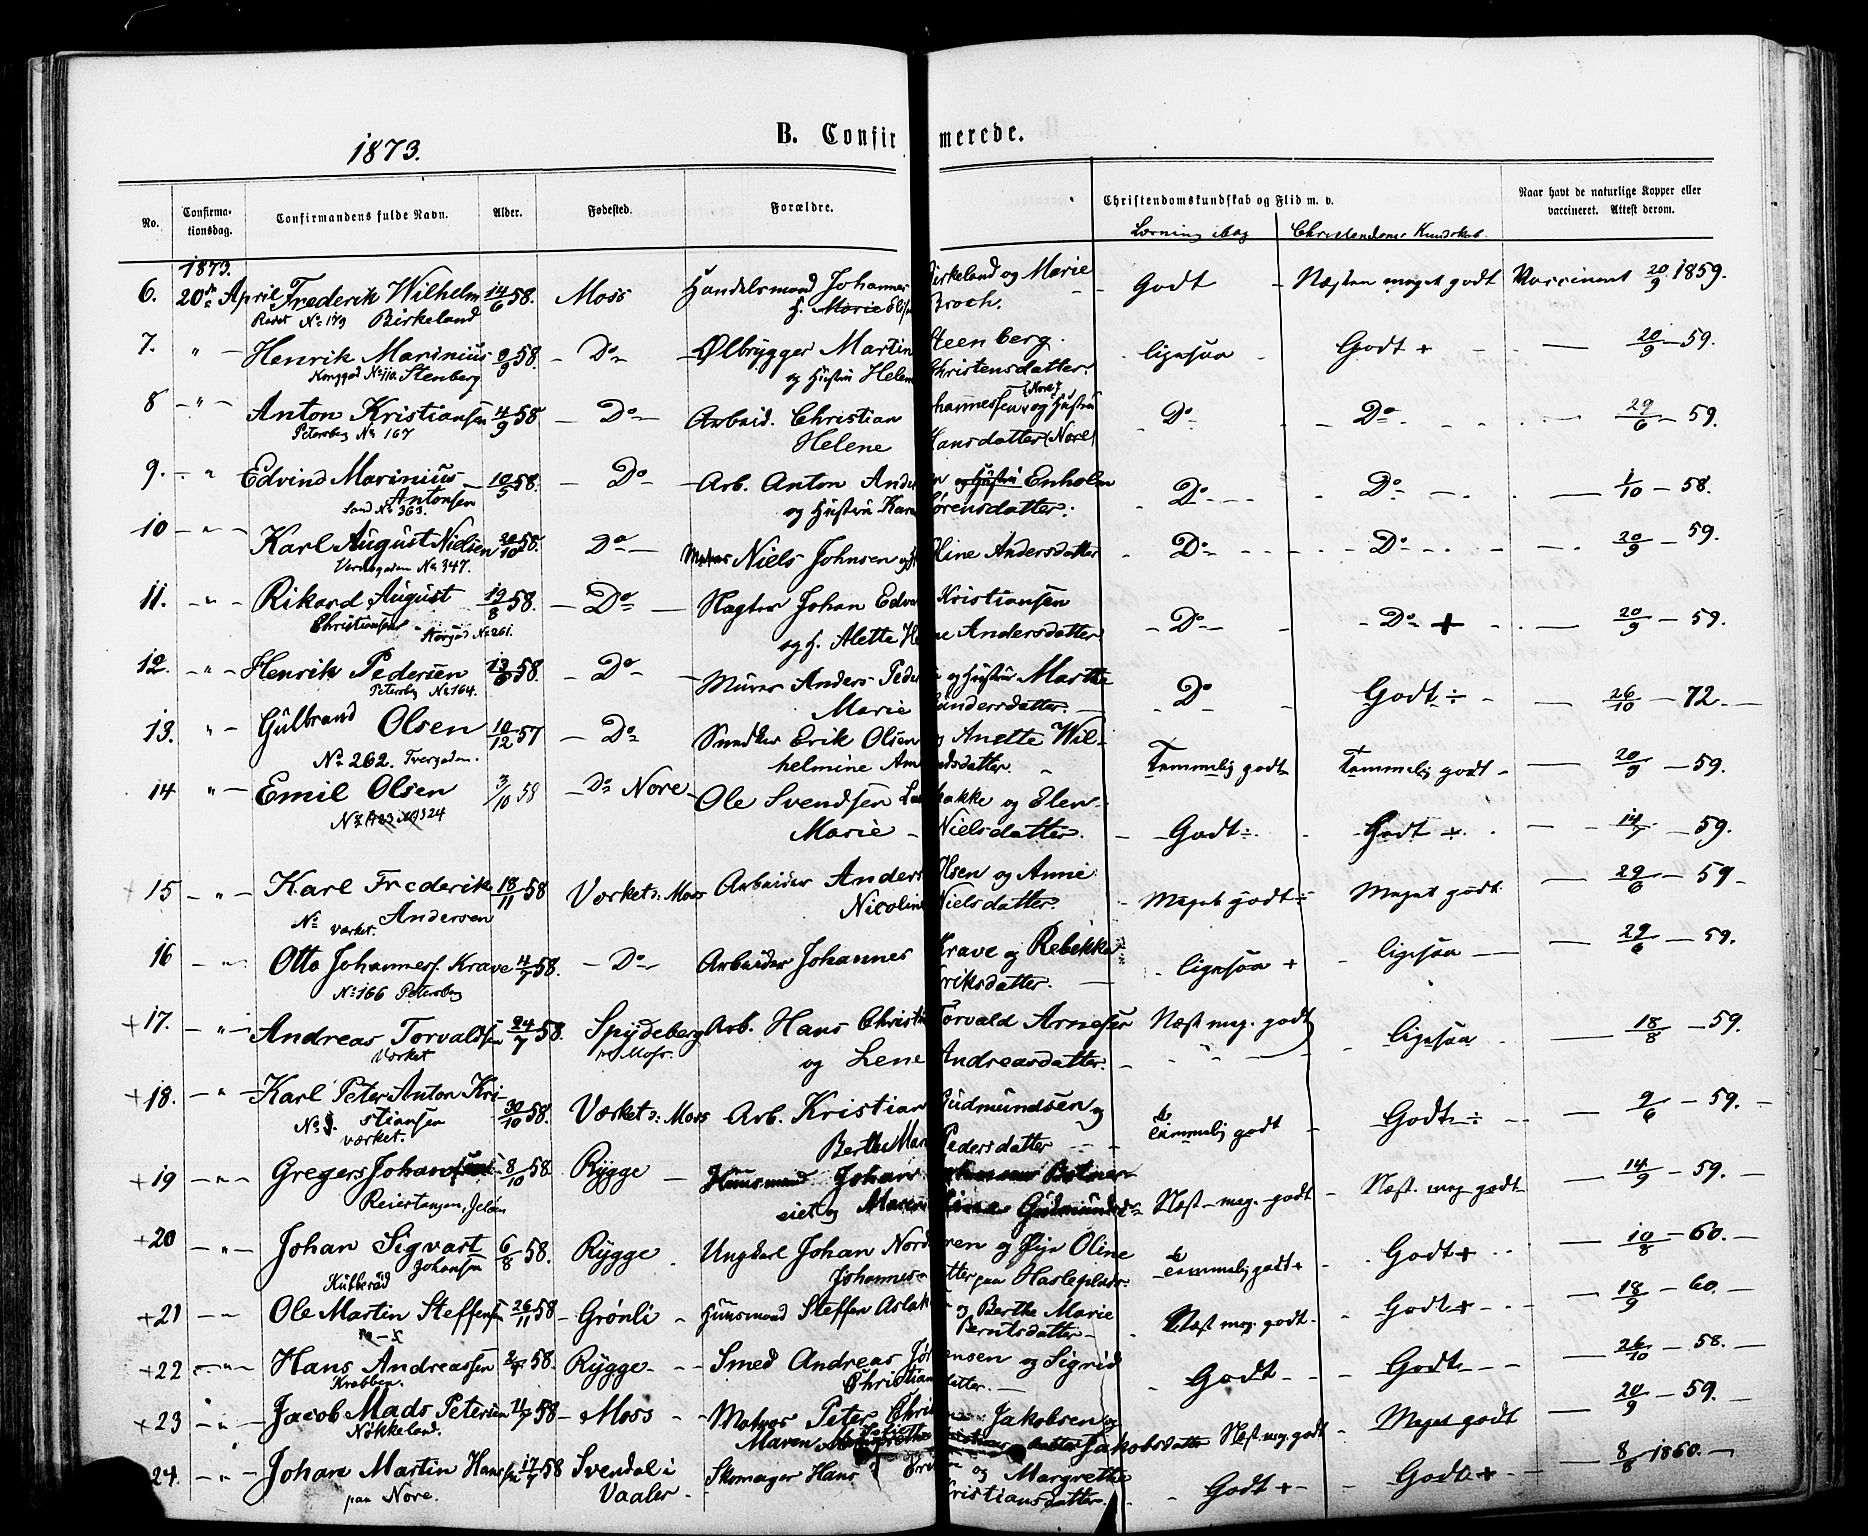 1873.
B. Confirmerede.
No. Confirmationsdag. Confirmandens fulde Navn. Alder. Fødested. Forældre. Christendomskundskab og Flid m. v. Naar havt de naturlige Kopper eller vaccineret. Attest derom.
Christendoms Kundskab
1873.
6. 20de April Frederik Wilhelm 14/6 58. Moss Handelsmand Johannes Birkeland og Marie Godt Næsten meget godt Vaccineret 20/9 1859.
No 179 Birkeland Broch.
7. " Henrik Marinius 9/9 58. Do Ølbrygger Martin Steenberg ligesaa Godt + 20/9 59.
No 110. Stenberg og Hustru Helene Christensdatter.
8 " Anton Kristiansen 4/9 58 Do Arbeid. Christian Johannessen (Nore) og Hustru Do Do 29/6 59.
Petersbg No 167 Helene Hansdatter (Nore)
9. " Edvind Marinius 10/5 58. Do Arb. Anton Andersen Enholm Do Do 1/10 58.
Antonsen
Sand No 363. og Hustru Karen Sørensdatter.
10 " Karl August Nielsen 20/10 58. Do Niels Johnsen Oline Andersdatter Do Do 20/9 59.
No 347.
11. " Rikard August 19/8 58. Do Johan Edvard Kristiansen Do Do + 20/9 59.
Christiansen No 261. og H. Alette Andersdatter
12. " Henrik Pedersen 58. Do Murer Anders Pedersen og Hustru Marthe Do Godt ÷ 26/10 72.
Petersbg No 164. Marie Gundersdatter.
13. " Gulbrand Olsen 10/12 57 Do Snedker Erik Olsen og Anette Wil- Temmelig godt Temmelig godt 20/9 59.
No 262. Tvergaden. helmine Amundsdatter.
14 " Emil Olsen 3/10 58 Do Nore Ole Svendsen og Elen Godt ÷ Godt + 14/7 59.
324 Marie Nielsdatter.
15 " Karl Frederik 18/11 58 Værket v. Moss Arbeider Anders Olsen og Anne Meget godt ÷ Meget godt 29/6 59
No Værket. Andersen Nicoline Nielsdatter.
16 " Otto Johanness. Krave 4/7 58. Do Arbeider Johannes Krave og Rebekke ligesaa + ligesaa 29/6 59.
No 166 Petersbg Eriksdatter.
+ 17. " Andreas Torvaldsen 24/7 58. Spydeberg Arb. Hans Christian Torvald Arnesen Næst meg. godt ligesaa 18/8 59.
Værket v. Moss. og Lene Andreasdatter.
+ 18. " Karl Peter Anton Kri- 30/10 58. Værket v. Moss Arb. Kristian Gudmundsen og temmelig godt Godt ÷ 9/6 59.
stiansen
værket. Berthe Marie Pedersdatter
+ 19 " Gregers Johansen 8/10 58. Rygge Huusmand Johan Næst meg. godt Næst. meg godt 14/9 59.
Reiertangen, Jeløen eiet og Maren Gudmundsd
+ 20 " Johan Sigvart 6/8 58. Rygge Ungkarl Johan og Pige Oline temmelig godt + Godt + 10/8 60.
Johansen
Kubberød Johannesdatter paa Hasleplads.
+ 21 " Ole Martin Steffensen 26/11 58 Grønli Huusmand Steffen Aslaksen og Berthe Marie Næst meg. godt Godt + 18/9 60.
Berntsdatter
+ 22 " Hans Andreassen 58. Rygge Smed Andreas Jørgensen og Sigrid Godt Godt 26/10 58.
Krabben. Christiansdatter.
+ 23 " Jacob Mads Petersen 58 Moss Matros Peter Jakobsen og Næst meg. godt Meget godt 20/9 59.
Nøkkeland. Maren Jakobsdatter
24. " Johan Martin Hansen 17/7 58 Svendal i Skomager Hans og Margrethe Godt + Godt + 8/8 1860.
paa Nore. Vaaler Kristiansdatter.